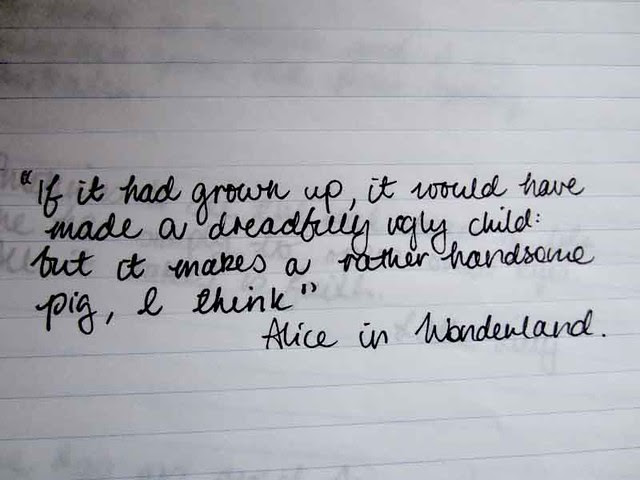 "If it had grown up, it would have
made a dreadfully ugly child:
but it makes a rather handsome
pig, I think"
Alice in Wonderland.